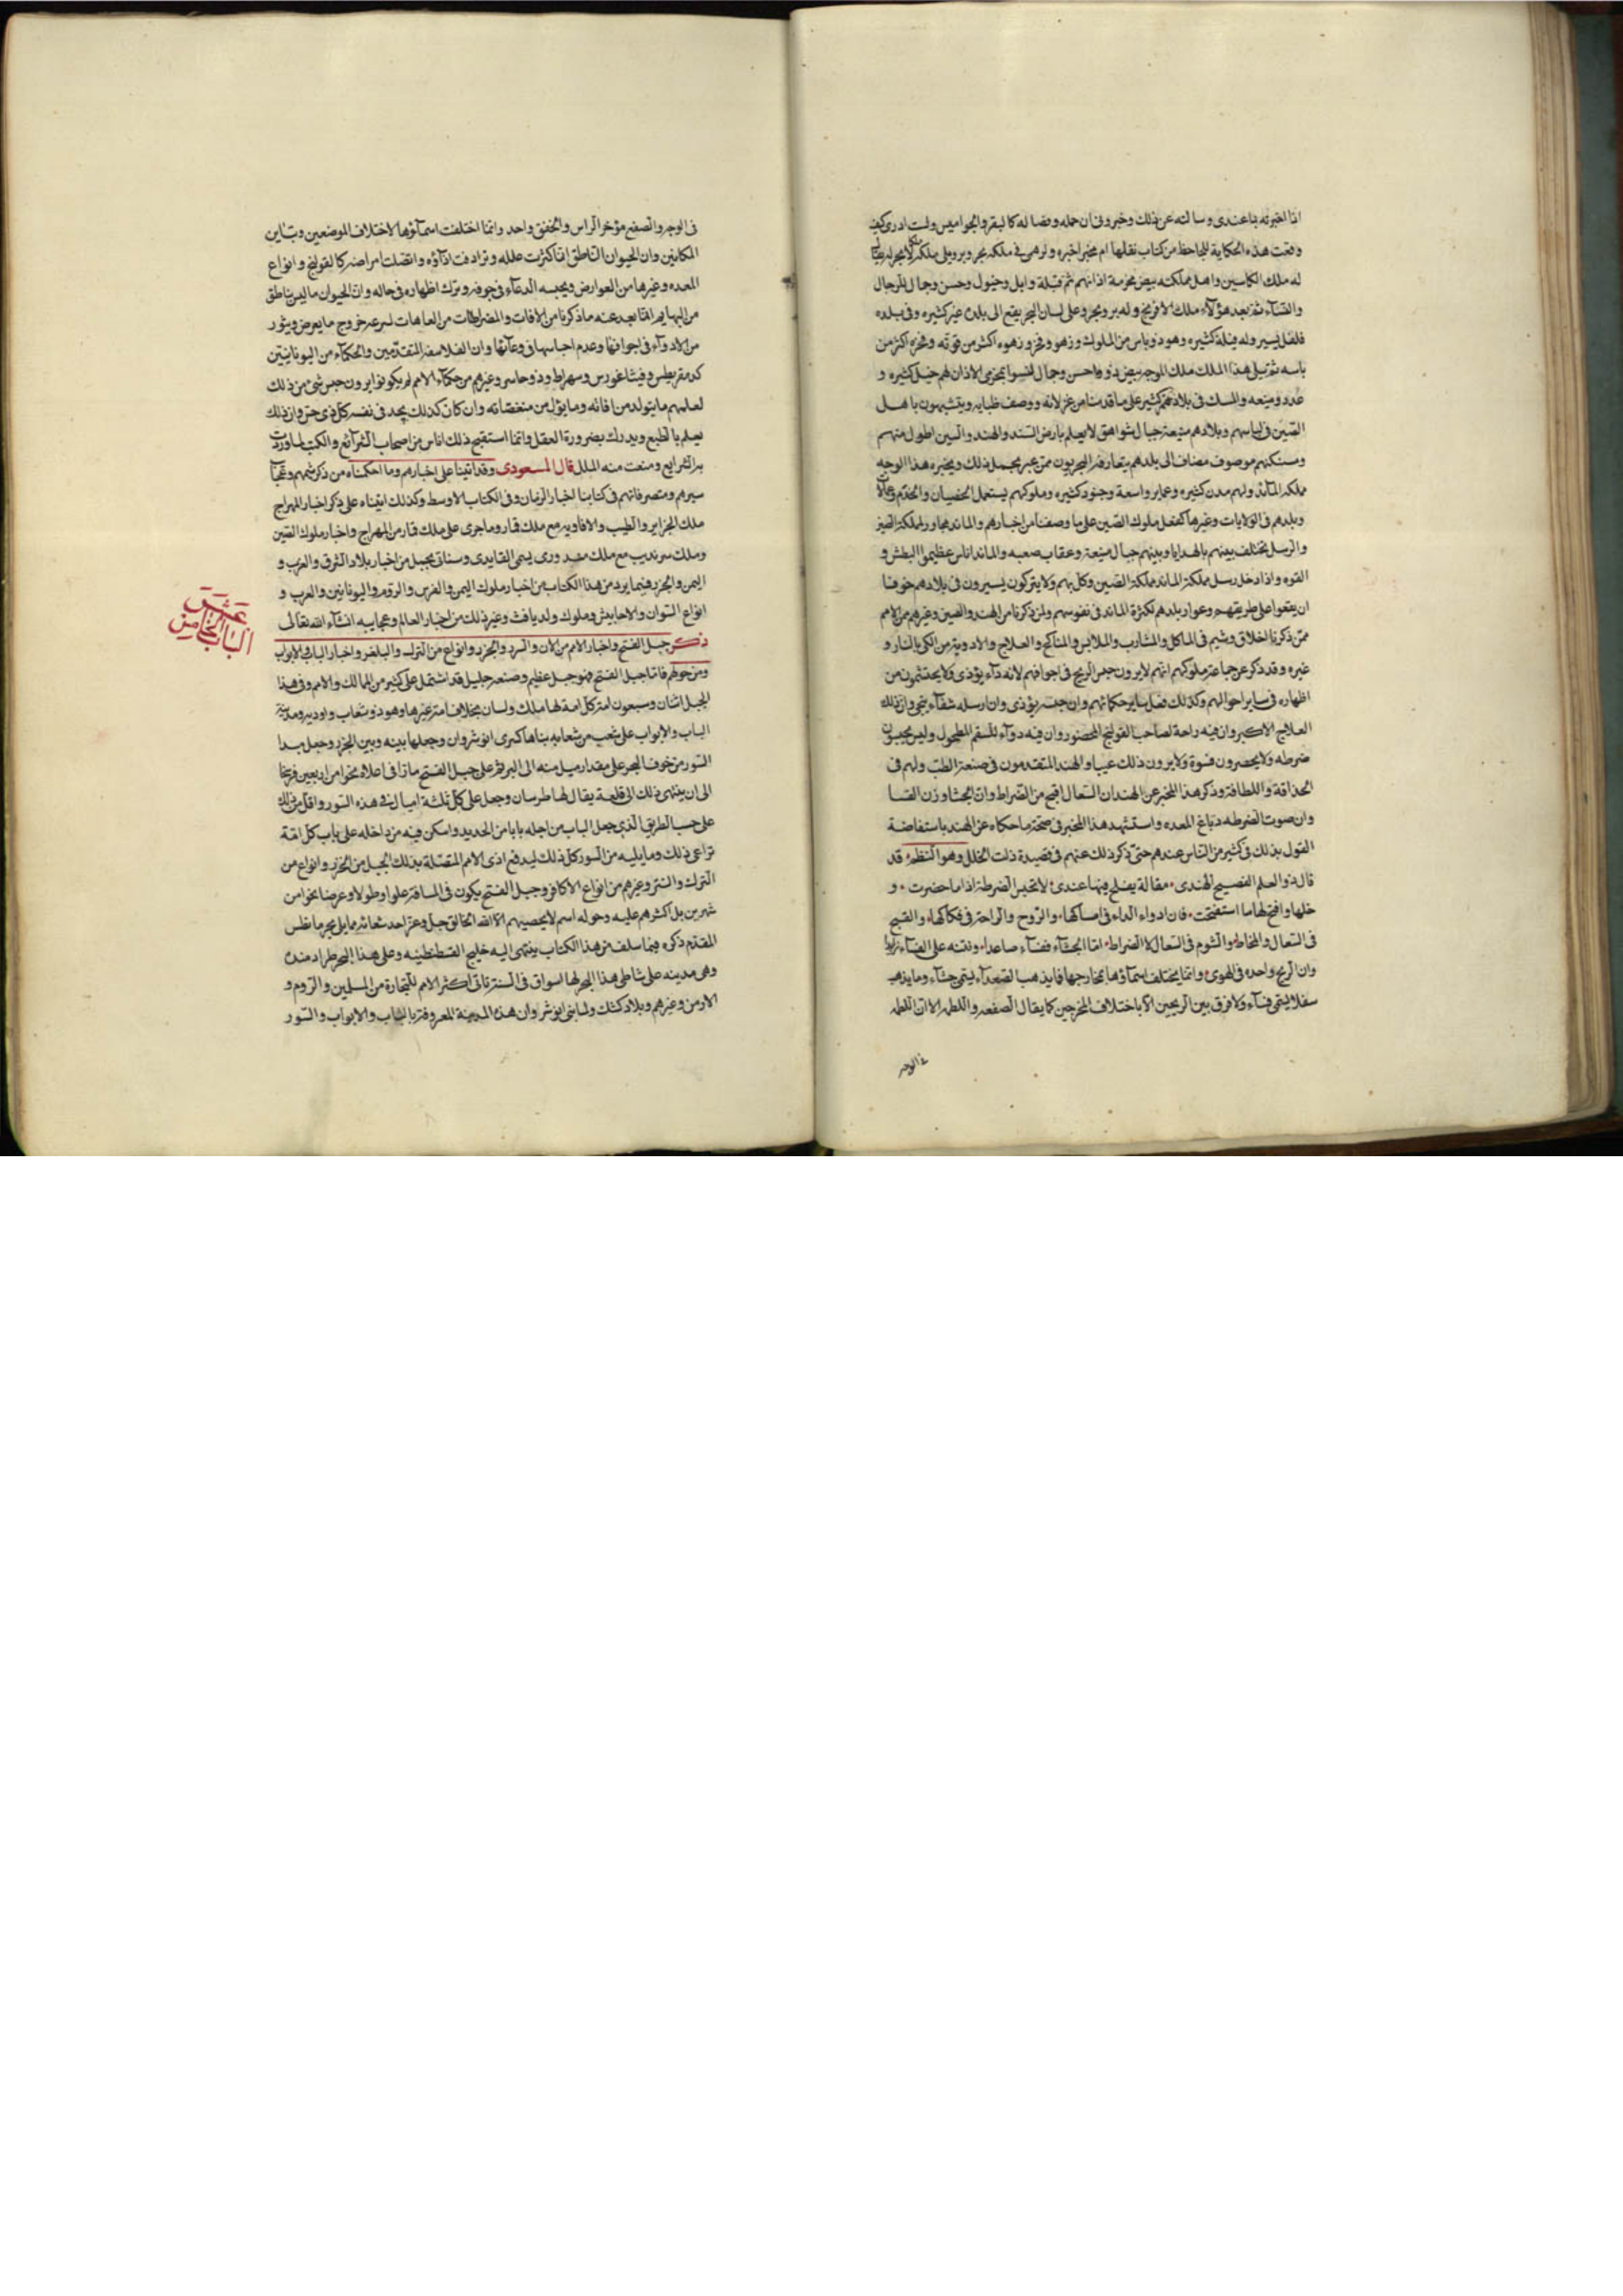 اذا اخبرته بما عندى وسالته عن ذلك وخبرونى ان حمله وفصاله كالبقر والجواميس ولست ادرى كيف
وقعت هذه الحكاية للجاحظ من كتاب نقلها ام مخبر اخبره ولرهمى فى ملكه بحر وبر ويلى ملكه ملك لا بحر له يقال
له ملك الكاسبين واهل مملكته بيض مخرمة اذانهم ثم قبلة وابل وخيول وحسن وجمال للرجال
والنسآء ثم بعد هؤلآء ملك الافرنج وله بر وبحر وعلى لسان البحر يقع الى بلده عنبر كثيره وفى بلده
فلفل يسير وله فيلة كثيره وهو ذو باس من الملوك وزهو وفخر وزهوه اكثر من قوته وفخره اكثر من
باسه ثم يلى هذا الملك ملك الموجه بيض ذوو احسن وجمال ليسوا بمخرمى الاذان لهم خيل كثيره و
عدد ومنعه والمسك فى بلادهم كثير على ما قدمنا من غزلانه ووصف ظبايه ويتشبهون باهل
الصين فى لباسهم وبلادهم منيعة جبال شواهق لا يعلم بارض السند والهند والصين اطول منهم
ومسكنهم موصوف مضاف الى بلدهم يتعارفه البحريون ممن عبر بحمل ذلك ويخبره هذا الوجه
مملكة المآند ولهم مدن كثيره وعماير واسعة وجنود كثيره وملوكهم يستعمل الخصيان والخدم وعمالا
وبلدهم فى الولايات وغيرها كفعل ملوك الصين على ما وصفنا من اخبارهم والماند مجاور لمملكة الصين
والرسل يختلف بينهم بالهدايا وبينهم جبال منيعة وعقاب صعبه والماند اناس عظيموا البطش و
القوه واذا دخل رسل مملكة الماند مملكة الصين وكل بهم ولا يتركون يسيرون فى بلادهم خوفا
ان يقعوا على طريقهم وعوار بلدهم لكثرة الماند فى نفوسهم ولمن ذكرنا من الهند والصين وغيرهم من الامم
ممن ذكرنا اخلاق وشيم فى الماكل والمشارب والملابس والمناكح والعلاج والادوية من الكى بالنار و
غيره وقد ذكر عن جماعة ملوكهم انهم لا يرون حبس الريح فى اجوافهم لانه دآء يؤذى ولا يحتشمون من
اظهاره فى ساير احوالهم وكذلك فعل ساير حكمائهم وان حبسه يؤذى وان ارساله شفآء ينجى وان ذلك
العلاج الاكبر وان فيه راحة لصاحب القولنج المحصور وان فيه دوآء للسقم المطحول وليس يحبسون
ضرطه ولا يحصرون فسوة ولا يرون ذلك عيبا والهند المتقدمون فى صنعة الطب ولهم فى
الحذاقة واللطافة وذكر هذا المخبر عن الهند ان السعال اقبح من الضراط وان الجشا وزن الفسا
وان صوت الضرطه دباغ المعده واستشهد هذا المخبر فى صحة ما حكاه عن الهند باستفاضة
القول بذلك فى كثير من الناس عندهم حتى ذكر ذلك عنهم فى قصيدة ذات الخلل وهو النظم قد
قال ذو العلم الفصيح الهندى مقالة يفلح فيها عندى لا تحبس الضرطة اذا ما حضرت و
خلها وافتح لها ما استفتحت فان ادواء الداء فى امساكها والروح والراحة فى فكاكها والقبح
فى السعال والمخاط والشوم فى السعال لا الضراط اما الجشآء ففسآء صاعدا ونتنه على الفسآء زايدا
وان الريح واحده فى الهوى وانما يختلف اسمآؤها بمخارجها فما يذهب الصعدآء يسمى جشآء وما يذهب
سفلا يسمى فسآء ولا فرق بين الريحين الا باختلاف المخرجين كما يقال الصفعه واللطمه الا ان اللطمه
فى الوجه
فى الوجه والصفع مؤخر الراس والخفق واحد وانما اختلفت اسمآؤها لاختلاف الموضعين وتباين
المكانين وان الحيوان الناطق انما كثرت علله وترادفت ادآؤه واتصلت امراضه كالقولنج وانواع
المعده وغيرها من العوارض ويحبسه الدعآء فى جوفه وترك اظهاره فى حاله وان الحيوان ما ليس بناطق
من البهايم انما بعد عنه ما ذكرنا من الافات والمضراطات من العاهات لسرعة خروج ما يعرض ويثور
من الادوآء فى اجوافها وعدم احباسها فى وعآئها وان الفلاسفه المتقدمين والحكمآء من اليونانيين
كدمقريطس وفيثاغورس وسهراط وذوحاسر وغيرهم من حكمآء الامم لم يكونوا يرون حبس شئ من ذلك
لعلمهم ما يتولد من افاته وما يؤل من منغصاته وان كان كذلك يجد فى نفسه كل ذى حس وان ذلك
يعلم بالطبع ويدرك بضرورة العقل وانما استقبح ذلك اناس من اصحاب الشرآئع والكتب لما وردت
به الشرايع ومنعت منه الملل قال المسعودى وقد اتينا على اخبارهم وما احكمناه من ذكر شيمهم وعجايب
سيرهم ومتصرفاتهم فى كتابنا اخبار الزمان وفى الكتاب الاوسط وكذلك اتيناه على ذكر اخبار المهراج
ملك الجزاير والطيب والافاويه مع ملك قمار وما جرى على ملك قمار من المهراج واخبار ملوك الصين
وملك سرنديب مع ملك مندورى يسمى القايدى وسناتى بجمل من اخبار بلاد الشرق والغرب و
اليمن والجزر فيما يرد من هذا الكتاب من اخبار ملوك اليمن والفرس والروم واليونانيين والعرب و
انواع السودان والاحابيش وملوك ولد يافث وغير ذلك من اخبار العالم وعجايبه انشآء الله تعالى
الباب الخامس عشر
ذكر جبل الفتح واخبار الامم من الان والسرد والخزر وانواع من الترك والبلغر واخبار الباب والابواب
ومن حولهم فاما جبل الفتح فهو جبل عظيم وصنعه جليل قد اشتمل على كثير من الممالك والامم وفى هذا
الجبل اثنان وسبعون امة كل امة لها ملك ولسان بخلاف امة غيرها وهو ذو شعاب واوديه ومدينة
الباب والابواب على شعب من شعابه بناها كسرى انوشروان وجعلها بينه وبين الخزر وجعل مبدا
السور من خوف البحر على مقدار ميل منه الى البر ثم على جبل الفتح مادا فى اعلاه نحوا من اربعين فرسخا
الى ان ينتهى ذلك الى قلعة يقال لها طبرسان وجعل على كل ثلثة اميال من هذه السور واقل من ذلك
على حسب الطريق الذى جعل الباب من اجله بابا من الحديد واسكن فيه من داخله على باب كل امة
تراعى ذلك وما يليه من السور كل ذلك ليدفع اذى الامم المتصلة بذلك الجبل من الخزر وانواع من
الترك والتتر وغيرهم من انواع الاكافر وجبل الفتح يكون فى المسافة علوا وطولا وعرضا نحوا من
شهرين بل اكثر هم عليه وحوله اسم لا يحصيهم الا الله الخالق جل وعز احد شعابه مما يلى بحر مانطس
المقدم ذكره فيما سلف من هذا الكتاب ينتهى اليه خليج القسطنطينه وعلى هذا البحر طرابزنده
وهى مدينه على شاطى هذا البحر لها اسواق فى السنة تاتى اكثر الامم للتجارة من المسلمين والروم و
الارمن وغيرهم وبلاد كشك ولما بنى انوشروان هذه المدينة المعروفة بالباب والابواب والسور